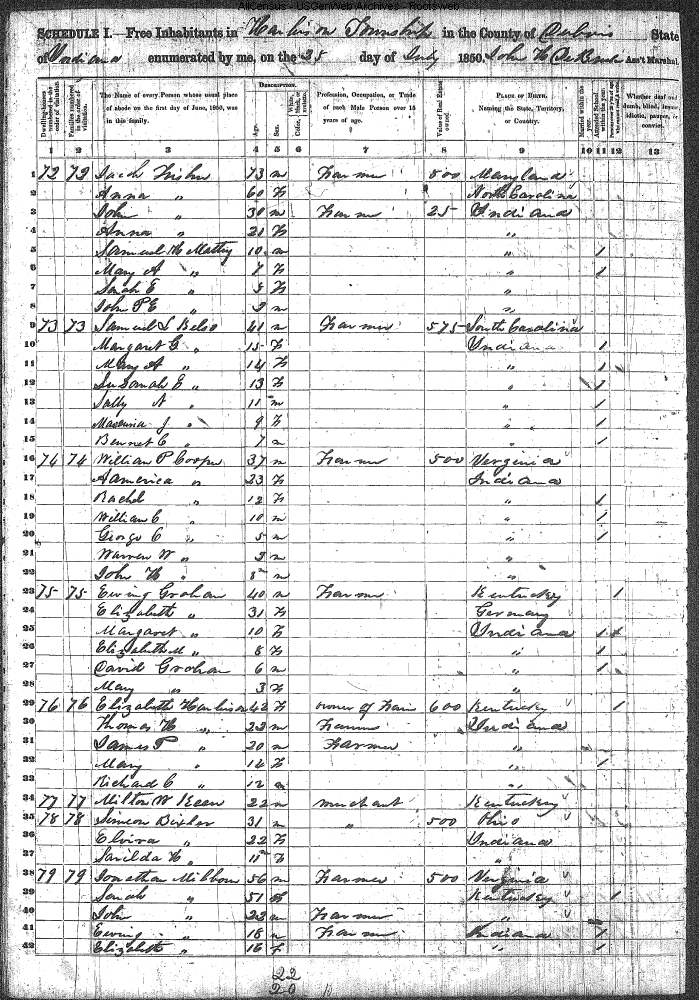 AllCensus - USGenWeb Archives - Rootsweb
SCHEDULE I.—Free Inhabitants in Harbison Township in the County of Dubois State
of Indiana enumerated by me, on the 25 day of July 1850. John H Ass't Marshal.
Dwelling-houses numbered in the order of visitation. Families numbered in the order of visitation. The Name of every Person whose usual place of abode on the first day of June, 1850, was in this family. DESCRIPTION. Age. Sex. Color, White, black, or mulatto. Profession, Occupation, or Trade of each Male Person over 15 years of age. Value of Real Estate owned. PLACE OF BIRTH. Naming the State, Territory, or Country. Married within the year. Attended School within the year. Whether deaf and dumb, blind, insane, idiotic, pauper, or convict.
1 2 3 4 5 6 7 8 9 10 11 12 13
1 72 72 73 m Farmer 800 Maryland
2 Anna " 60 F North Carolina
3 John " 30 m Farmer 25 Indiana
4 Anna " 21 F "
5 Samuel H 10 m " 1
6 Mary A " 7 F " 1
7 Sarah E " 5 F "
8 John P E " 3 m "
9 73 73 Samuel L Kelso 41 m Farmer 575 South Carolina
10 Margaret G " 15 F Indiana 1
11 Mary A " 14 F " 1
12 Susanah E " 13 F " 1
13 Sally A " 11 m " 1
14 J " 9 F " 1
15 Bennet C " 7 m " 1
16 74 74 William P Cooper 37 m Farmer 500 Verginia
17 America " 23 F Indiana
18 Rachel " 12 F " 1
19 William C " 10 m " 1
20 George C " 5 m " 1
21 Warren W " 3 m "
22 John H " m "
23 75 75 Ewing Graham 40 m Farmer Kentuckey 1
24 Elizabeth " 31 F Germany
25 Margaret " 10 F Indiana 1
26 Elizabeth M " 8 F " 1
27 David Graham 6 m " 1
28 Mary " 3 F "
29 76 76 Elizabeth Harbison 42 F owner of Farm 600 Kentuckey 1
30 Thomas H " 22 m Farmer Indiana
31 James P " 20 m Farmer "
32 Mary " 14 F " 1
33 Richard C " 12 m "
34 77 77 Milton W Keen 22 m merchant Kentuckey
35 78 78 Simeon Bixler 31 m " 500 Ohio
36 Elvira " 22 F Indiana
37 Sarilda H " F "
38 79 79 Jonathan 56 m Farmer 500 Verginia
39 Sarah " 51 F Kentuckey 1
40 John " 22 m Farmer "
41 Ewing " 18 m Farmer Indiana 1
42 Elizabeth " 16 f " 1
22
20